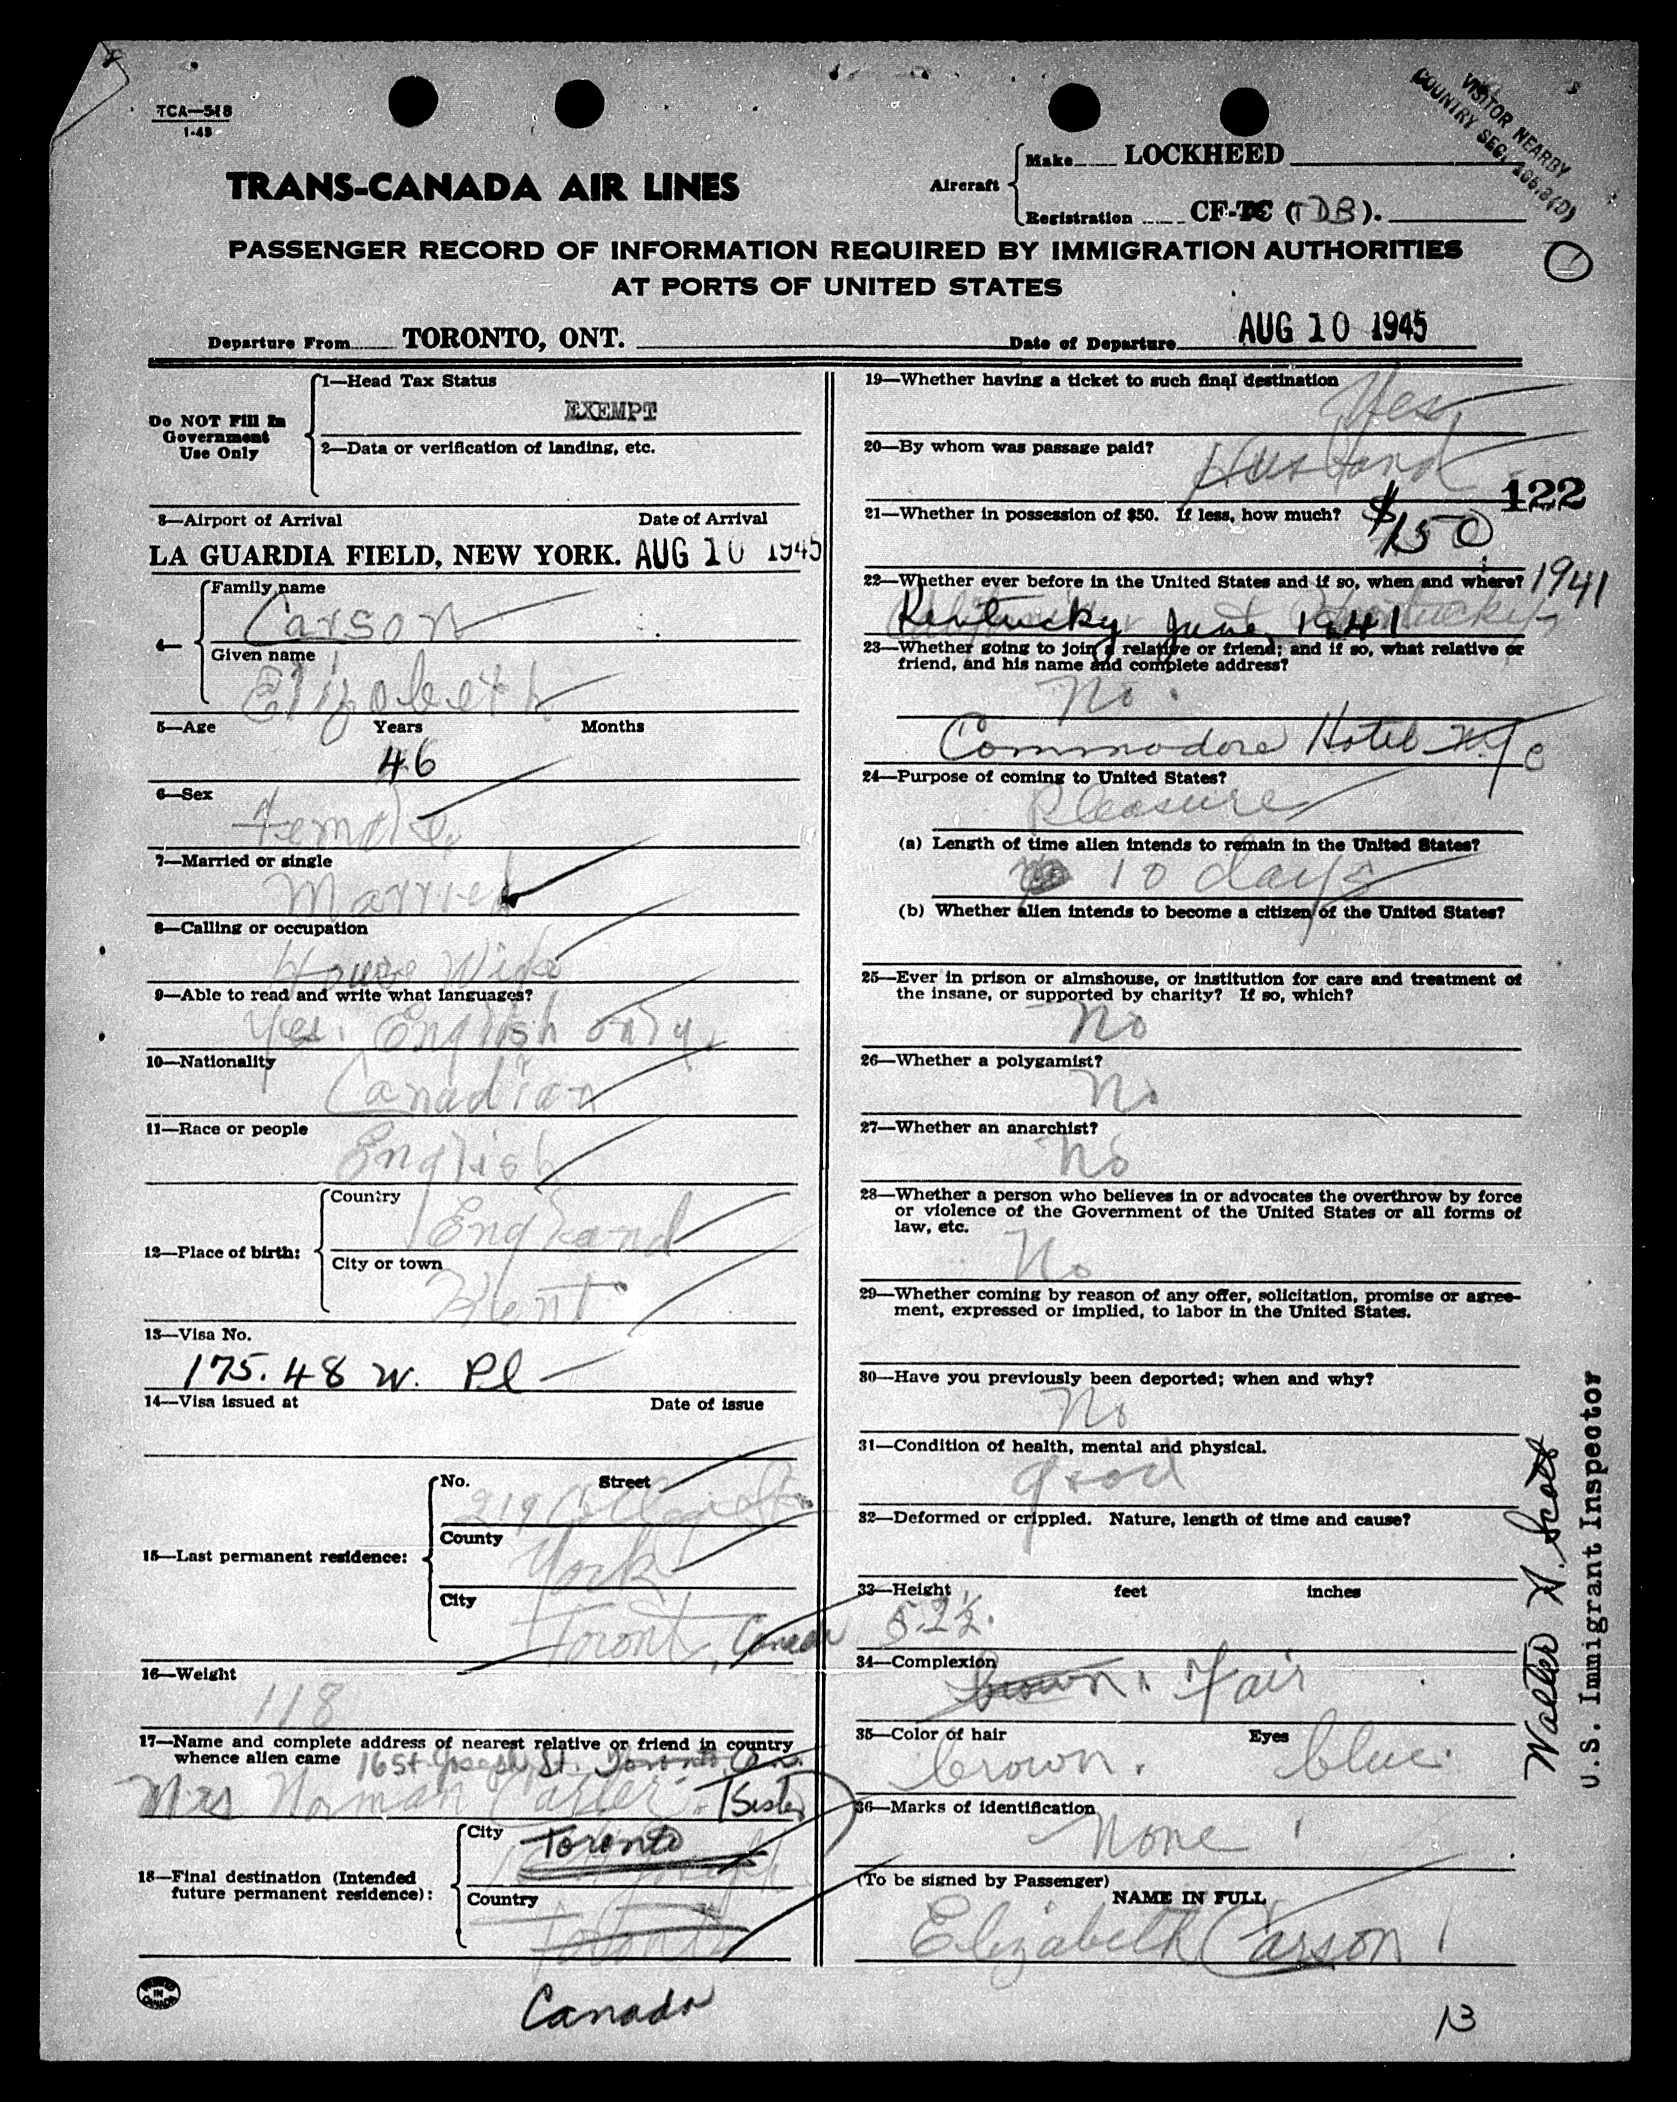 TCA—518
1-45
VISITOR NEARBY
COUNTRY SEC.
TRANS-CANADA AIR LINES
Aircraft
Make LOCKHEED
Registration CF-TC (TDB).
PASSENGER RECORD OF INFORMATION REQUIRED BY IMMIGRATION AUTHORITIES
AT PORTS OF UNITED STATES
Departure From TORONTO, ONT. Date of Departure AUG 10 1945
Do NOT Fill In
Government
Use Only
1—Head Tax Status
EXEMPT
2—Data or verification of landing, etc.
3—Airport of Arrival Date of Arrival
LA GUARDIA FIELD, NEW YORK. AUG 10 1945
4—
Family name
Carson
Given name
Elizabeth
5—Age Years Months
46
6—Sex
Female
7—Married or single
Married
8—Calling or occupation
House Wife
9—Able to read and write what languages?
Yes. English only.
10—Nationality
Canadian
11—Race or people
English
12—Place of birth:
Country
England
City or town
Kent
13—Visa No.
175.48 W. Pl
14—Visa issued at Date of issue
15—Last permanent residence:
No. Street
219 St.
County
York
City
Toronto, Canada
16—Weight
118
17—Name and complete address of nearest relative or friend in country
whence alien came 16 St. Joseph St. Toronto, Can.
Mrs Norman (Sister)
18—Final destination (Intended
future permanent residence):
City Toronto
Country
Toronto
Canada
19—Whether having a ticket to such final destination
Yes
20—By whom was passage paid?
Husband
122
21—Whether in possession of $50. If less, how much? $150
22—Whether ever before in the United States and if so, when and where? 1941
Kentucky June, 1941
23—Whether going to join a relative or friend; and if so, what relative or
friend, and his name and complete address?
No.
Commodore Hotel NYC
24—Purpose of coming to United States?
Pleasure
(a) Length of time alien intends to remain in the United States?
10 days
(b) Whether alien intends to become a citizen of the United States?
25—Ever in prison or almshouse, or institution for care and treatment of
the insane, or supported by charity? If so, which?
No
26—Whether a polygamist?
No
27—Whether an anarchist?
No
28—Whether a person who believes in or advocates the overthrow by force
or violence of the Government of the United States or all forms of
law, etc.
No
29—Whether coming by reason of any offer, solicitation, promise or agree-
ment, expressed or implied, to labor in the United States.
30—Have you previously been deported; when and why?
No
31—Condition of health, mental and physical.
good
32—Deformed or crippled. Nature, length of time and cause?
33—Height feet inches
5.2½.
34—Complexion
brown. Fair
35—Color of hair Eyes
brown. blue.
36—Marks of identification
None
(To be signed by Passenger)
NAME IN FULL
Elizabeth Carson
13
Walter A. Scott
U.S. Immigrant Inspector